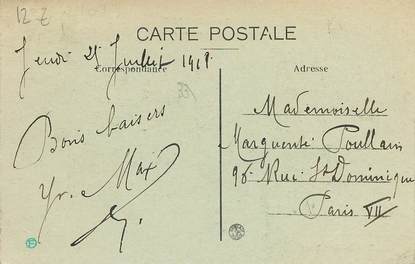 12 Z
CARTE POSTALE
Jeudi 25 Juillet 1918
Correspondance
33
Bons baisers
Yv. Max
Adresse
Mademoiselle
Marguerite Poullain
90 Rue St Dominique
Paris VII